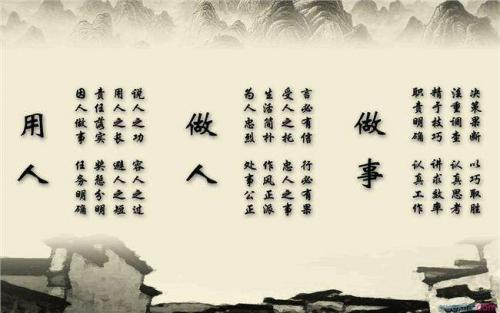 决策果断 以巧取胜
注重调查 认真思考
精于技巧 讲求效率
职责明确 认真工作
做事
言必有信 行必有果
受人之托 忠人之事
生活简朴 作风正派
为人忠烈 处事公正
做人
说人之功 容人之过
用人之长 避人之短
责任落实 奖惩分明
因人做事 任务明确
用人